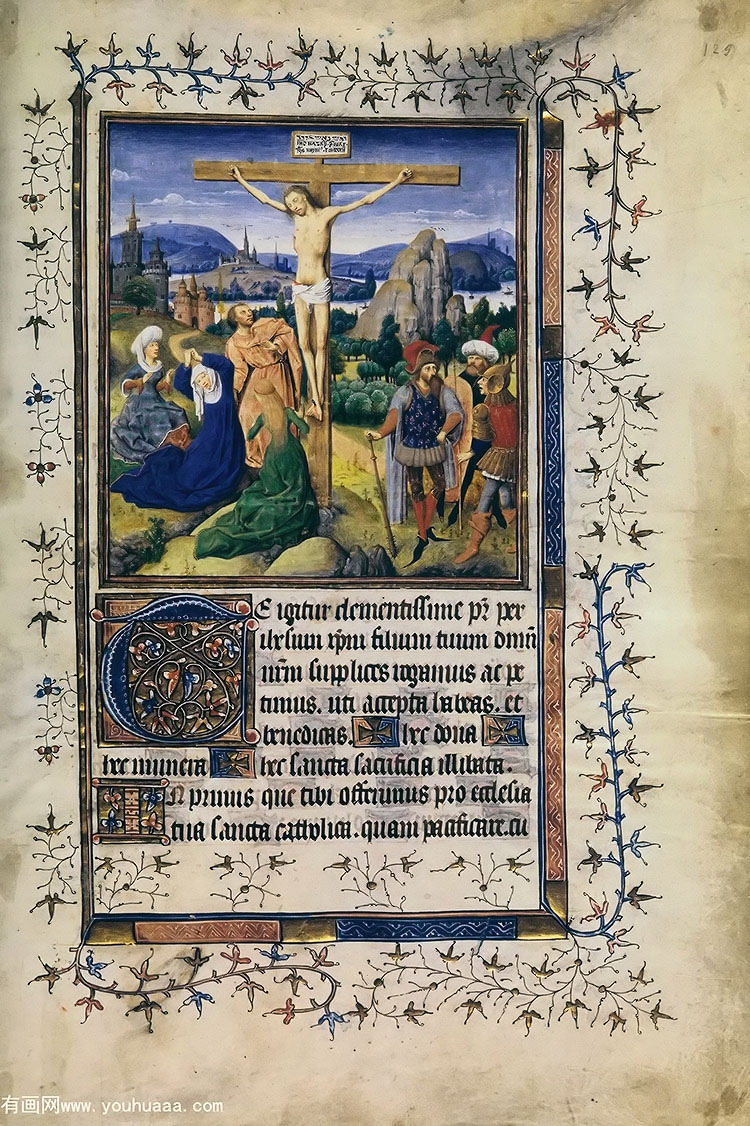 125
TE igitur clementissime pr̄ per
ihesum xp̄m filium tuum dmn̄
nr̄m supplices rogamus ac pe
timus. uti accepta habeas. et
benedicas. ✠ hec dona ✠
hec munera ✠ hec sancta sacrificia illibata.
IN primis que tibi offerimus pro ecclesia
tua sancta cattolica. quam pacificare cu
有画网www.youhuaaa.com